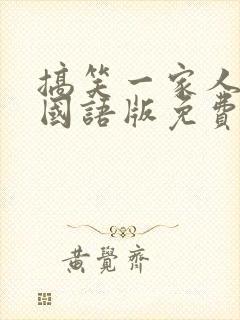 搞笑一家人
國語版免費
黃覺齊